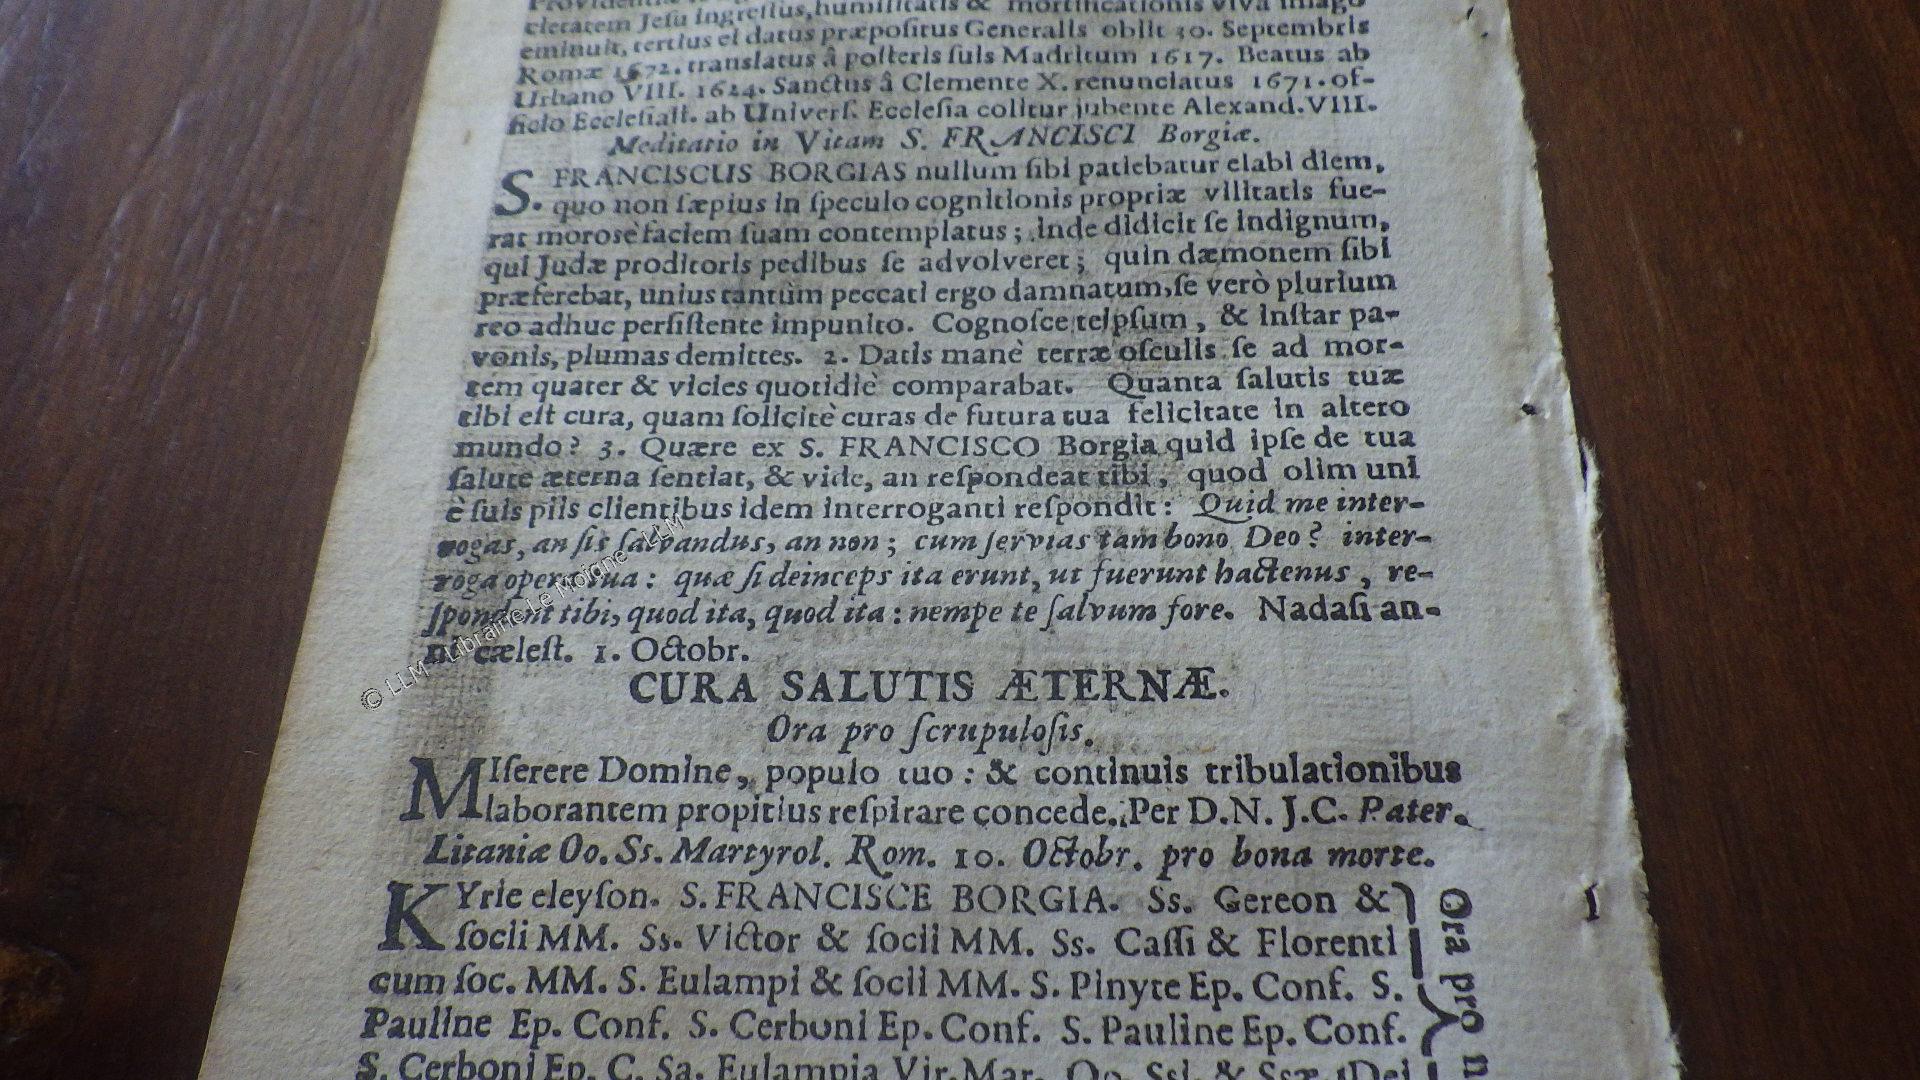 cietatem Jeſu ingreſſus, humilitatis & mortificationis viva imago
eminuit, tertius ei datus præpoſitus Generalis obiit 30. Septembris
Romæ 1672. translatus â poſteris ſuis Madritum 1617. Beatus ab
Urbano VIII. 1624. Sanctus â Clemente X. renunciatus 1671. of-
ficio Eccleſiaſt. ab Univerſ. Eccleſia colitur jubente Alexand. VIII.
Meditatio in Vitam S. FRANCISCI Borgiæ.
S. FRANCISCUS BORGIAS nullum ſibi patiebatur elabi diem,
quo non ſæpius in ſpeculo cognitionis propriæ vilitatis fue-
rat morosè faciem ſuam contemplatus; inde didicit ſe indignum,
qui Judæ proditoris pedibus ſe advolveret; quin dæmonem ſibi
præferebat, unius tantùm peccati ergo damnatum, ſe verò plurium
reo adhuc perſiſtente impunito. Cognoſce teipſum, & inſtar pa-
vonis, plumas demittes. 2. Datis manè terræ oſculis ſe ad mor-
tem quater & vicies quotidiè comparabat. Quanta ſalutis tuæ
tibi eſt cura, quam ſolicitè curas de futura tua felicitate in altero
mundo? 3. Quære ex S. FRANCISCO Borgia quid ipſe de tua
ſalute æterna ſentiat, & vide, an reſpondeat tibi, quod olim uni
è ſuis piis clientibus idem interroganti reſpondit: Quid me inter-
rogas, an ſis ſalvandus, an non; cum ſervias tam bono Deo? inter-
roga opera tua: quæ ſi deinceps ita erunt, ut fuerunt hactenus, re-
ſpondent tibi, quod ita, quod ita: nempe te ſalvum fore. Nadaſi an-
no cæleſt. 1. Octobr.
CURA SALUTIS ÆTERNÆ.
Ora pro ſcrupuloſis.
MIſerere Domine, populo tuo: & continuis tribulationibus
laborantem propitius reſpirare concede. Per D.N. J.C. Pater.
Litaniæ Oo. Ss. Martyrol. Rom. 10. Octobr. pro bona morte.
KYrie eleyſon. S. FRANCISCE BORGIA. Ss. Gereon &
ſocii MM. Ss. Victor & ſocii MM. Ss. Caſſi & Florenti
cum ſoc. MM. S. Eulampi & ſocii MM. S. Pinyte Ep. Conf. S.
Pauline Ep. Conf. S. Cerboni Ep. Conf. S. Pauline Ep. Conf.
S. Cerboni Ep. C. Sa. Eulampia Vir. Mar. Oo. Ssi. & Ssæ. Dei
Ora pro n
© LLM - Librairie Le Moigne - LLM